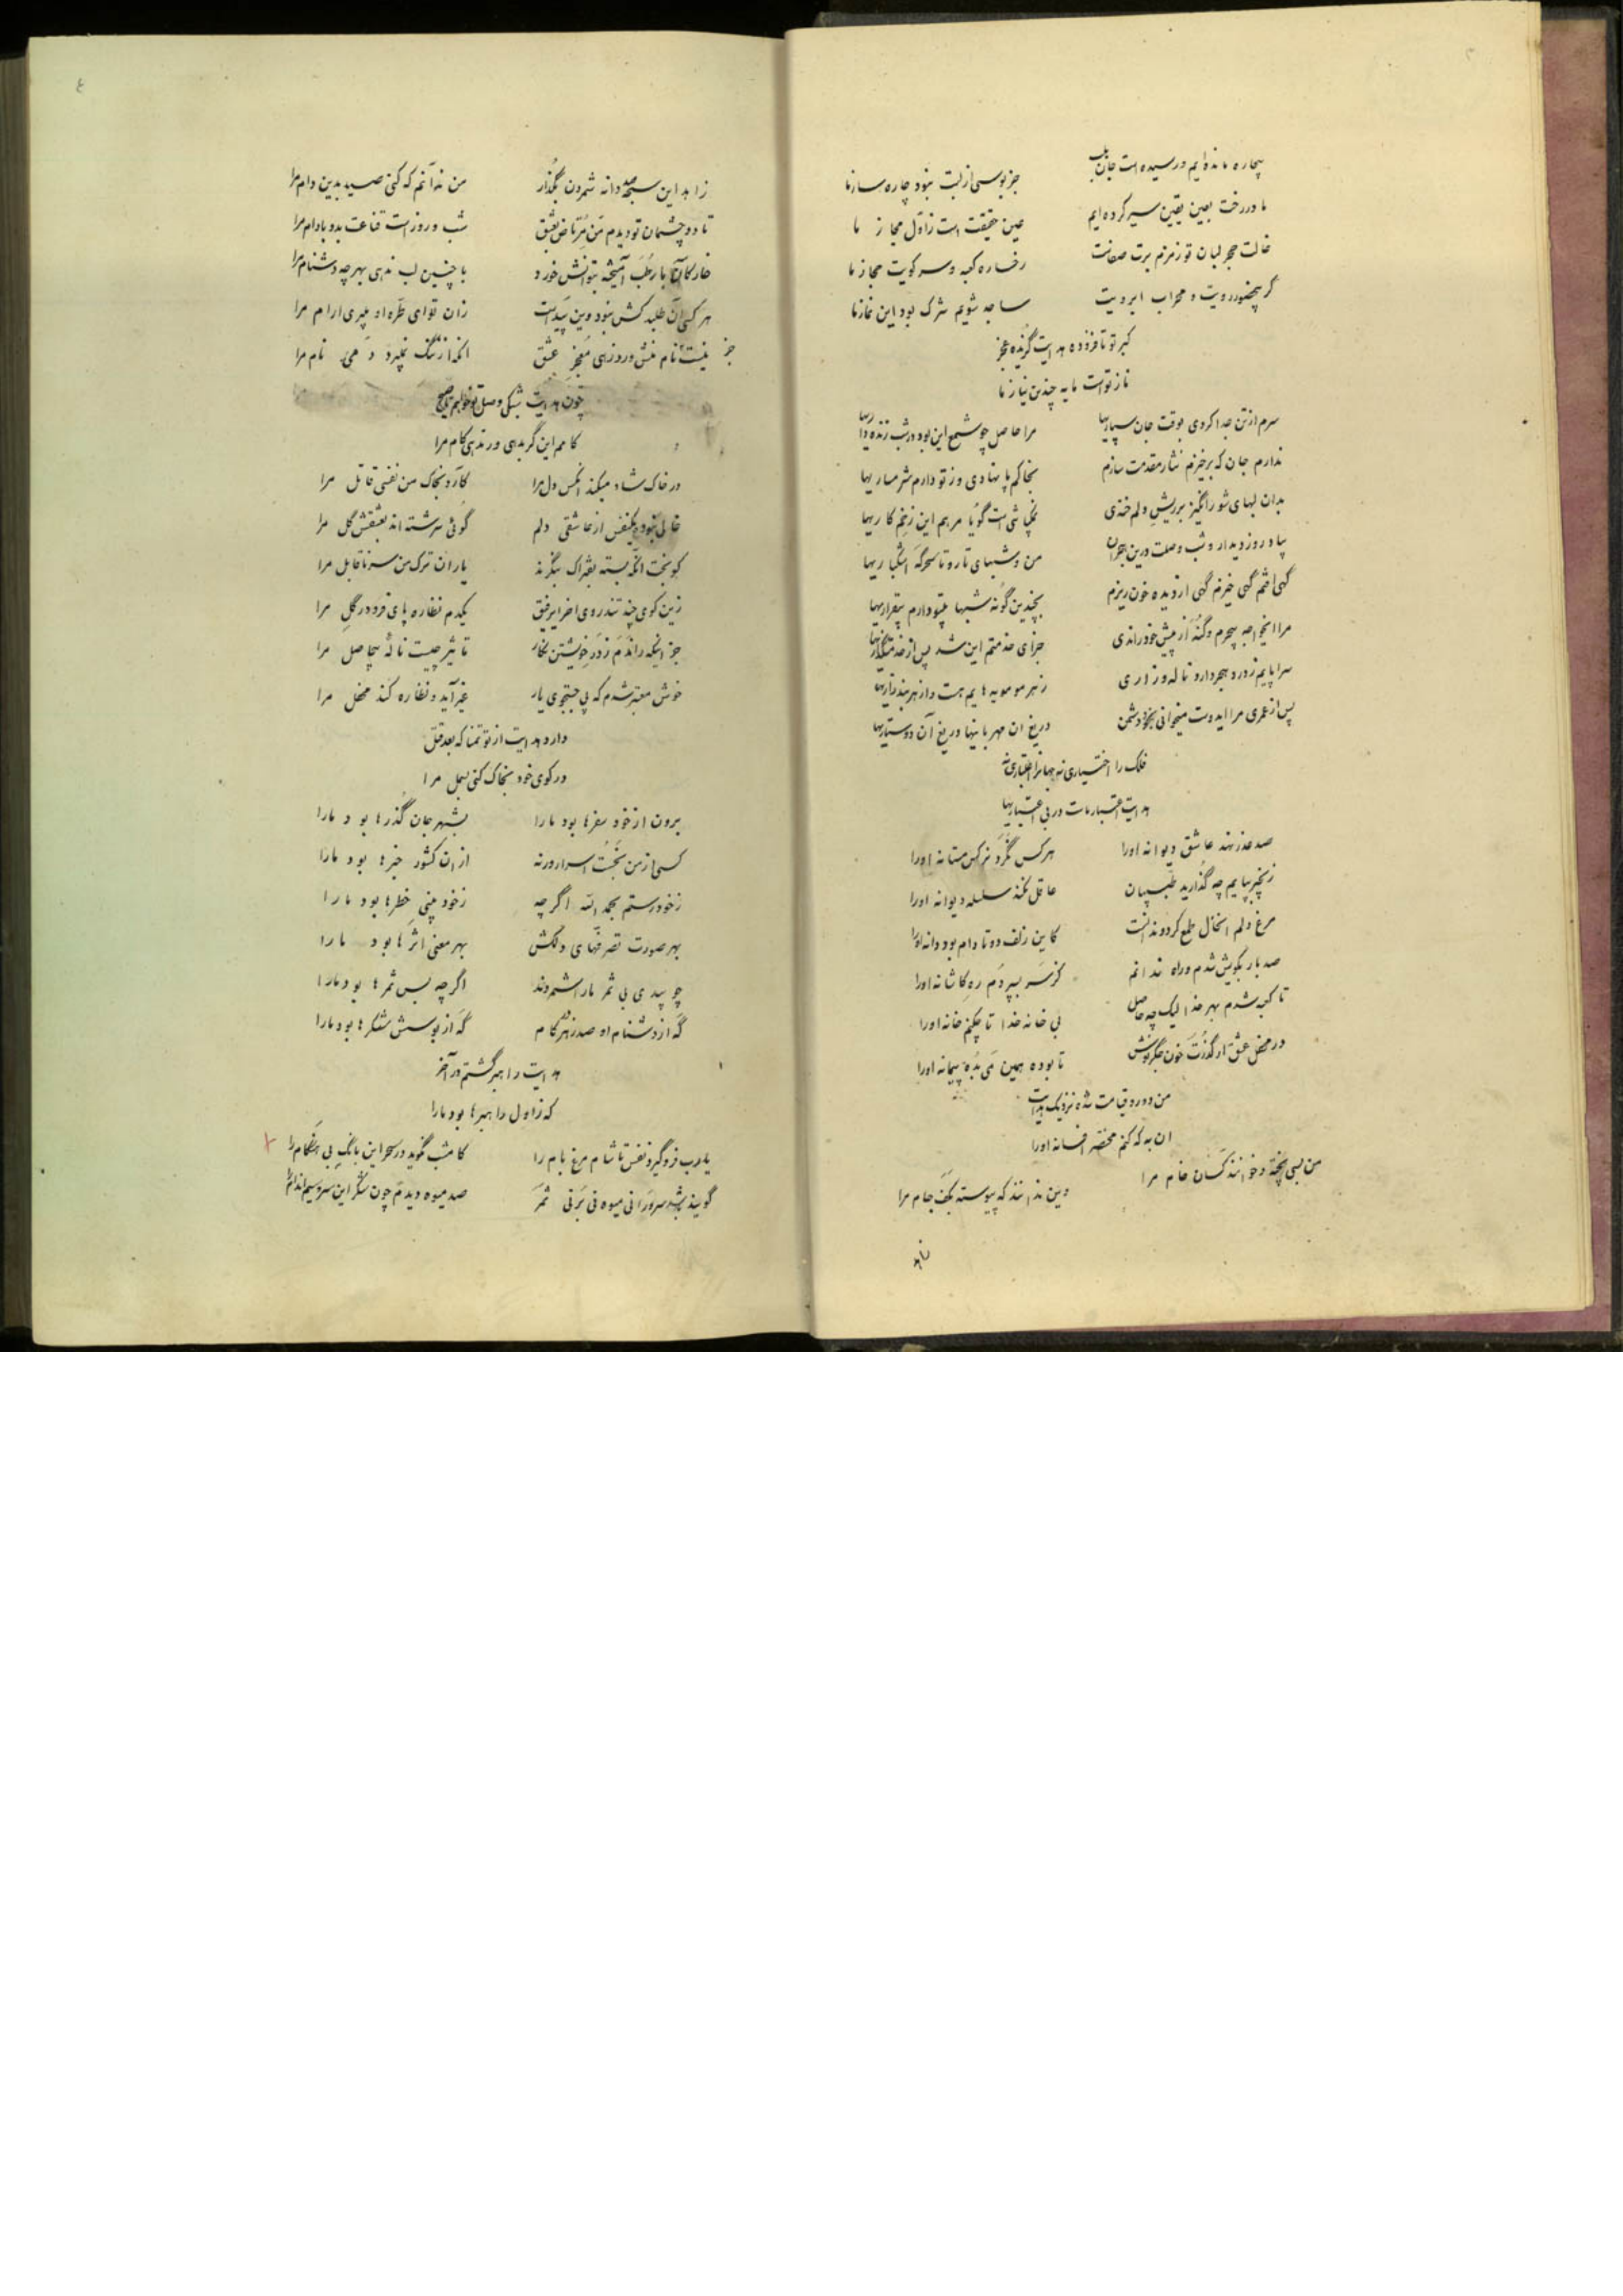 بیچاره مانده‌ایم و رسیده است جان بلب
جز بوسی از لبت نبود چاره‌ساز ما
ما در رخت بعین یقین سیر کرده‌ایم
عین حقیقت است ز اول مجاز ما
خالت حجر لبان تو زمزم برت صفاست
رخساره کعبه و سر کویت حجاز ما
گر بیحضور رویت و محراب ابرویت
ساجد شویم شرک بود این نماز ما
کبر تو تا فزوده هدایت گزیده عجز
ناز تو است مایه چندین نیاز ما
سرم از تن جدا کردی بوقت جان سپاریها
مرا حاصل چو شمع این بود در شب زنده داریها
ندارم جان که برخیزم نثار مقدمت سازم
بخاکم پا نهادی وز تو دارم شرمساریها
بدان لبهای شورانگیز بر ریش دلم خندی
نمکپاشی است گویا مرهم این زخم کاریها
بیاد روز دیدار و شب وصلت درین هجران
من و شبهای تار و تا سحرگه اشگباریها
گهی افتم گهی خیزم گهی از دیده خون ریزم
بچندین گونه شبها بیتو دارم بیقراریها
مرا اینخواجه بیجرم و گنه از پیش خود راندی
جزای خدمتم این شد پس از خدمتگذاریها
سراپایم ز درد هجر دارد ناله و زاری
ز هر مو مویه‌هایم هست و از هر بند زاریها
پس از عمری مرا ایدوست میخوانی بخود دشمن
دریغ ان مهربانیها دریغ آن دوستداریها
فلک را اختیاری نه جهانرا اعتباری نه
هدایت اعتبار ماست در بی اعتباریها
صد عذر نهد عاشق دیوانه اورا
هر کس نگرد نرکس مستانه اورا
زنجیر بپایم چه گذارید طبیبان
عاقل نکند سلسله دیوانه اورا
مرغ دلم از خال طمع کرد و ندانست
کاین زلف دو تا دام بود دانه اورا
صد بار بکویش شدم و راه ندانم
کز سر بسپردم ره کاشانه اورا
تا کعبه شدم بهر خدا لیک چه حاصل
بی خانه خدا تا چکنم خانه اورا
در محفل عشق ار گذرت خون جگر نوش
تا بوده همین می بده پیمانه اورا
من دور و قیامت شده نزدیک هدایت
ان به که کنم مختصر افسانه اورا
من بسی پخته و خوانند کسان خام مرا
وین ندانند که پیوسته بکف جام مرا
زاهد
زاهد این سبحه صد دانه شمردن بگذار
من ندانم که کنی صید بدین دام مرا
تا دو چشمان تو دیدم من مرتاض بعشق
شب و روز است قناعت بدو بادام مرا
خار کان با رطب آمیخته بتوانش خورد
با چنین لب ندهی بهر چه دشنام مرا
هر کسی آن طلبد کش نبود وین پیداست
زان تو ای طره او میبری ارام مرا
جز نیست نام منش و روزهی معجز عشق
انکه از ننگ نمیبرد دمی نام مرا
چون هدایت شبکی وصل تو خواهم تا صبح
کامم این گر بدهی ور ندهی کام مرا
در خاک شاد میکند انکس دل مرا
کآرد بخاک من نفسی قاتل مرا
خالی نبود یکنفس از عاشقی دلم
گوئی سرشته اند بعشقش گل مرا
کو بخت انکه بسته بفتراک بنگرند
یاران ترک من سر ناقابل مرا
زین کوی چند تند روی اخر ایرفیق
یکدم نظاره پای فرو در گل مرا
جز اینکه راندم ز در خویشتن نگار
تاثیر چیست ناله بیحاصل مرا
خوش معتبر شدم که پی جستجوی یار
غیر آید و نظاره کند محفل مرا
دارد هدایت از تو تمنا که بعد قتل
در کوی خود بخاک کنی بسمل مرا
برون از خود سفرها بود مارا
بشهر جان گذرها بود مارا
کسی از من نجست اسرار ورنه
از ان کشور خبرها بود مارا
ز خود رستم بحمد الله اگرچه
ز خود بینی خطرها بود مارا
بهر صورت تصرفهای دلکش
بهر معنی اثرها بود مارا
چو بیدی بی ثمر ما را شمردند
اگرچه بس ثمرها بود مارا
گه از دشنام او صد زهر در کام
گه از بوسش شکرها بود مارا
هدایت راهبر گشتم در آخر
که ز اول راهبرها بود مارا
یا رب فرو گیرد نفس تا شام مرغ بام را
کامشب نگوید در سحر این بانگ بی هنگام را
گویند باشد سرو را نی میوه نی بر نی ثمر
صد میوه دیدم چون شکر این سرو سیم اندام را